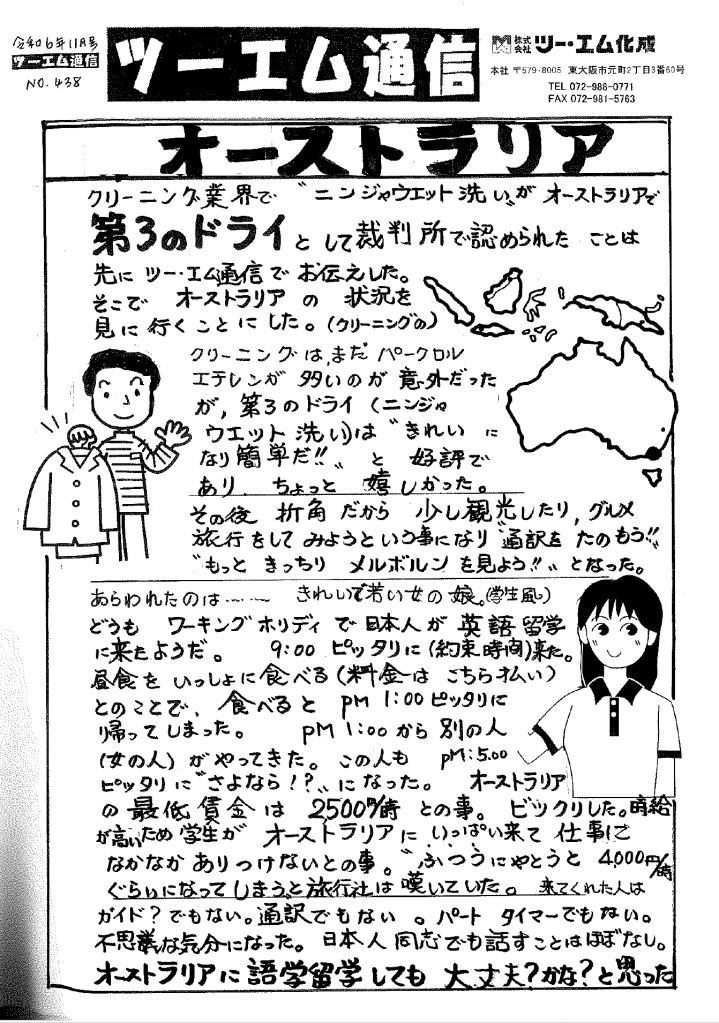 令和6年11月号
ツーエム通信
NO.438
ツーエム通信
株式会社 ツー・エム化成
本社 〒579-8005 東大阪市元町2丁目3番60号
TEL 072-988-0771
FAX 072-981-5763
オーストラリア
クリーニング業界で〝ニンジャウエット洗い〟が オーストラリアで
第3のドライとして裁判所で認められた ことは
先に ツー・エム通信で お伝えした。
そこで オーストラリア の 状況を
見に 行くことに した。(クリーニングの)
クリーニングは、まだ パークロル
エテレンが 多いのが 意外だった
が、第3のドライ (ニンジャ
ウエット 洗い)は〝きれい に
なり簡単だ!!〟と 好評で
あり、ちょっと 嬉しかった。
その後 折角 だから 少し観光したり、グルメ
旅行をして みようという事になり〝通訳を たのもう!!〟
〝もっと きっちり メルボルン を見よう!!〟となった。
あらわれたのは…… きれいで若い女の娘。(学生風)
どうも ワーキングホリディで日本人が 英語留学
に来たようだ。 9:00 ピッタリに(約束時間)来た。
昼食を いっしょに食べる(料金は こちら払い)
とのことで、食べると PM 1:00ピッタリに
帰ってしまった。 PM 1:00から 別の人
(女の人) が やってきた。この人も PM:5.00
ピッタリに〝さよなら!?〟になった。 オーストラリア
の 最低賃金は 2500円/時 との事。ビックリした。時給
が高いため学生が オーストラリアに いっぱい来て 仕事に
なかなか ありつけないとの事。〝ふつうにやとうと 4,000円/時
ぐらいになってしまうと旅行社は嘆いていた。 来てくれた人は
ガイド?でもない。通訳でもない 。パート タイマーでもない。
不思議な気分になった。 日本人同志でも話すことはほぼなし。
オーストラリアに 語学留学しても 大丈夫?かな?と思った